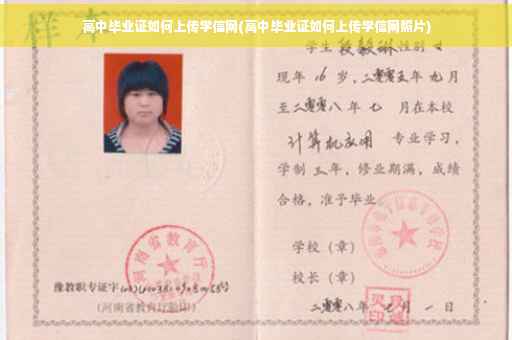 高中毕业证如何上传学信网(高中毕业证如何上传学信网照片)
样本
学生段毅琳性别女
现年16岁,二零零五年九月
至二零零八年七月在本校
计算机应用 专业学习,
学制三年,修业期满,成绩
合格,准予毕业
学校(章)
校长(章)
二零零八年 月一日
河南省教育厅
豫教职专证字
(河南省教育厅验印)